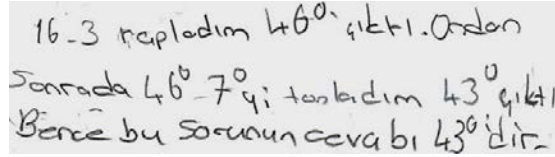 16-3 rapladım 46° çıktı. Ondan
Sonrada 46° - 7° yi topladım 43° çıktı
Bence bu sorunun cevabı 43° dir.